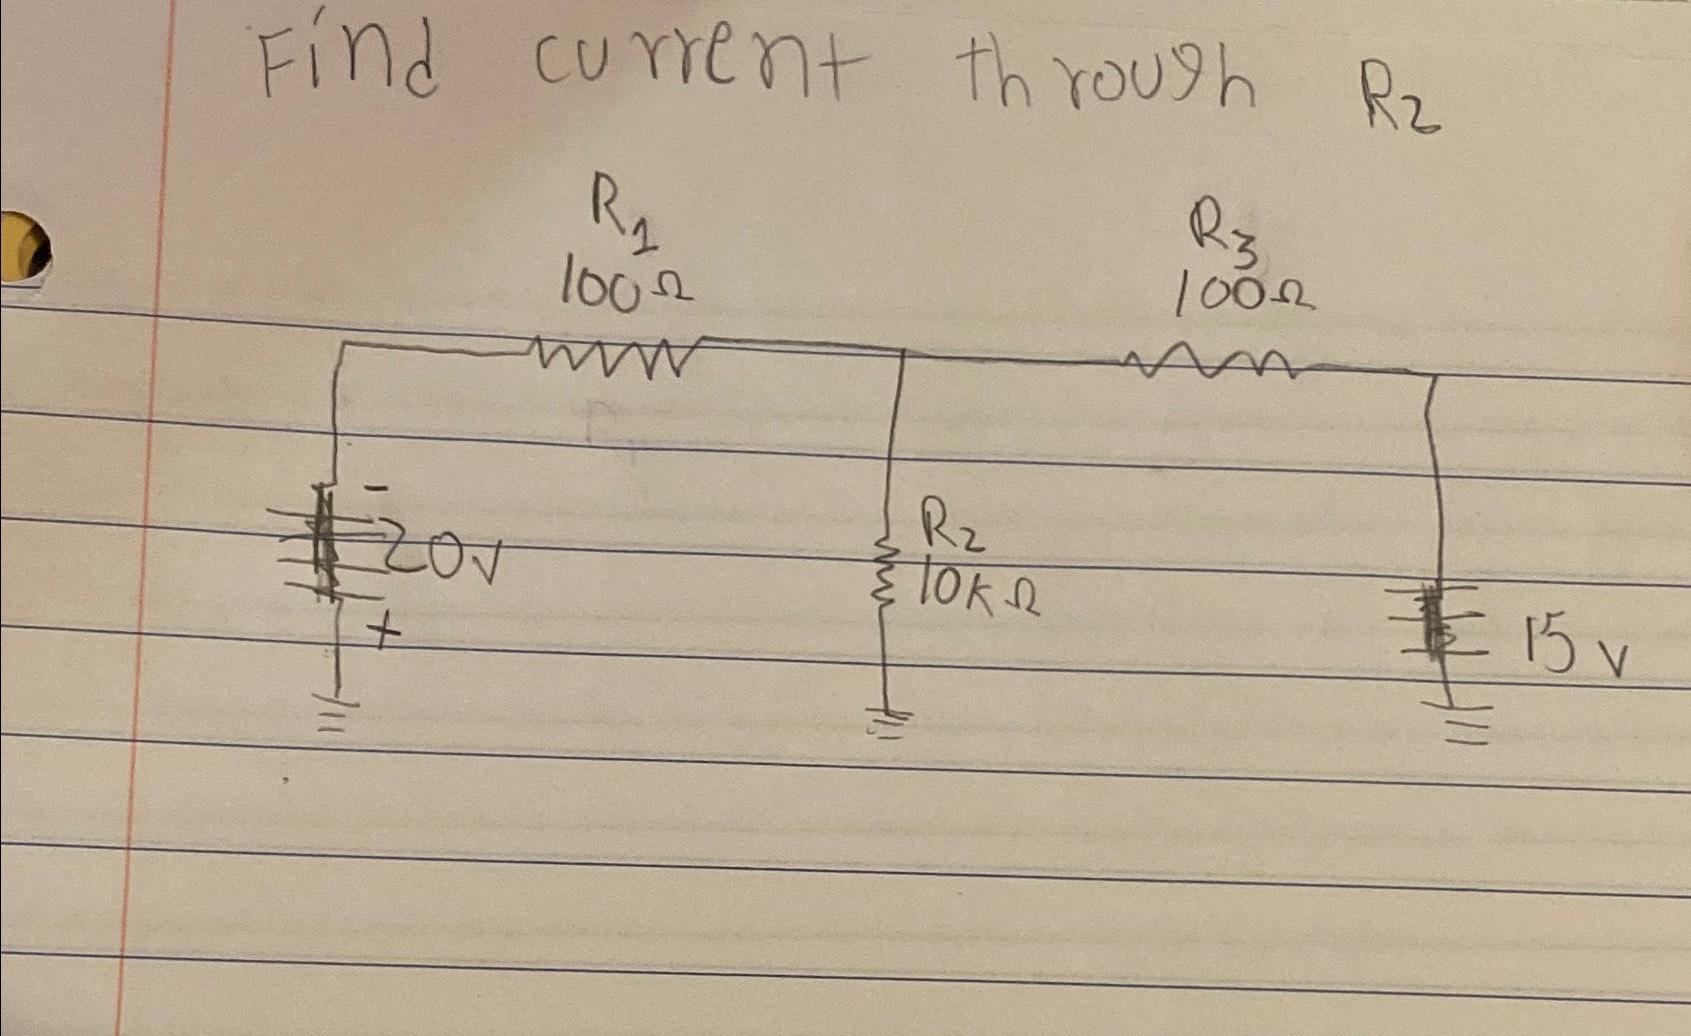 Find current through R2
R1
100Ω
R3
100Ω
-
20V
+
R2
10KΩ
15 V